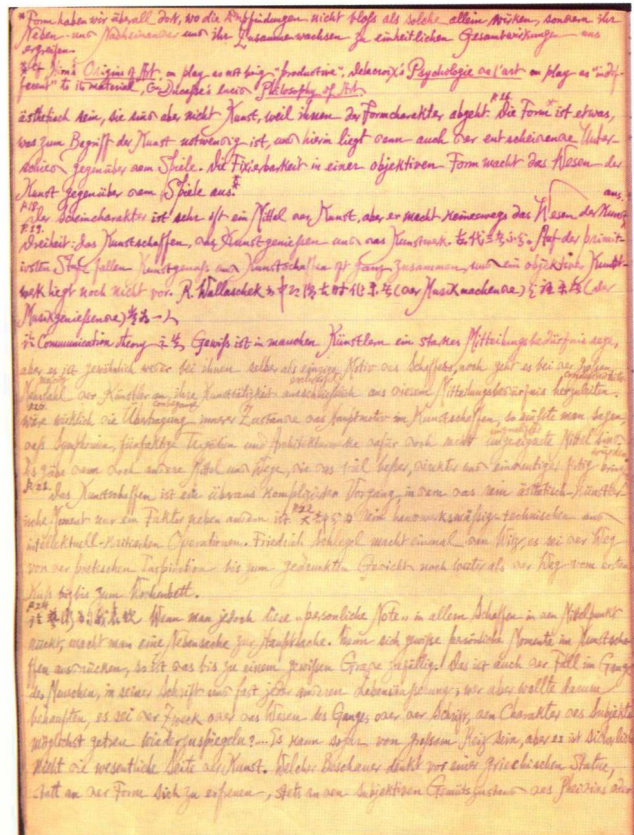 * Form haben wir überall dort, wo die Empfindungen nicht bloss als solche allein wirken, sondern ihr
Neben- und Nacheinander und ihr Zusammenwachsen zu einheitlichen Gesamtwirkungen uns
ergreifen.
Hirn's Origins of Art, on play as not being "productive", Delacroix's Psychologie de l'art on play as "indif-
ferent" to its material, Ducasse's Philosophy of Art
ästhetisch sein, sie sind aber nicht Kunst, weil ihnen der Formcharakter abgeht. Die Form* ist etwas,
was zum Begriff der Kunst notwendig ist, und hierin liegt dann auch der entscheidende Unter-
schied gegenüber dem Spiele. Die Fixierbarkeit in einer objektiven Form macht das Wesen der
Kunst gegenüber dem Spiele aus.
aus.
p.18. Der Scheincharakter ist sehr oft ein Mittel der Kunst, aber er macht keineswegs das Wesen der Kunst
p.19. Dreiheit: das Kunstschaffen, das Kunstgeniessen und das Kunstwerk. Auf der primit-
ivsten Stufe fallen Kunstgenuss und Kunstschaffen oft ganz zusammen, und ein objektives Kunst-
werk liegt noch nicht vor. R. Wallaschek (der Musikmachende) (der
Musikgeniessende) 一人
Communication theory Gewiss ist in manchen Künstlern ein starkes Mitteilungsbedürfnis rege,
aber es ist gewöhnlich weder bei ihnen selber als einziges Motiv des Schaffens, noch geht es bei der grossen
Mehrzahl der Künstler an, ihre Kunsttätigkeit ausschliesslich aus diesem Mitteilungsbedürfnis herzuleiten.
p.20. Wäre wirklich die Übertragung innerer Zustände das Hauptmotiv im Kunstschaffen, so müsste man sagen,
dass Symphonien, fünfaktige Tragödien und Architekturwerke dafür doch recht ungeeignete Mittel sind.
Es gäbe dann doch andere Mittel und Wege, die das viel besser, direkter und eindeutiger fertig
p.21. Das Kunstschaffen ist ein überaus komplizierter Vorgang, in dem das rein ästhetisch-künstler-
ische Moment nur ein Faktor neben andern ist. p.22 rein handwerksmässig-technischen und
intellektuell-kritischen Operationen. Friedrich Schlegel macht einmal den Witz, es sei der Weg
von der poetischen Inspiration bis zum gedruckten Gedicht noch weiter als der Weg vom ersten
Kuss bis zum Wochenbett.
p.24 Wenn man jedoch diese »persönliche Note« in allem Schaffen in den Mittelpunkt
rückt, macht man eine Nebensache zur Hauptsache. Wenn sich gewisse persönliche Momente im Kunstscha-
ffen ausdrücken, so ist das bis zu einem gewissen Grade zufällig. Das ist auch der Fall im Gang
des Menschen, in seiner Schrift und fast jeder anderen Lebensäusserung; wer aber wollte darum
behaupten, es sei der Zweck oder das Wesen des Ganges oder der Schrift, den Charakter des Subjekts
möglichst getreu wiederzuspiegeln?.... Es kann sogar von grossem Reiz sein, aber es ist sicherlich
nicht die wesentliche Seite der Kunst. Welcher Beschauer denkt vor einer griechischen Statue,
statt an der Form sich zu erfreuen, stets an den subjektiven Gemütszustand des Pheidias oder